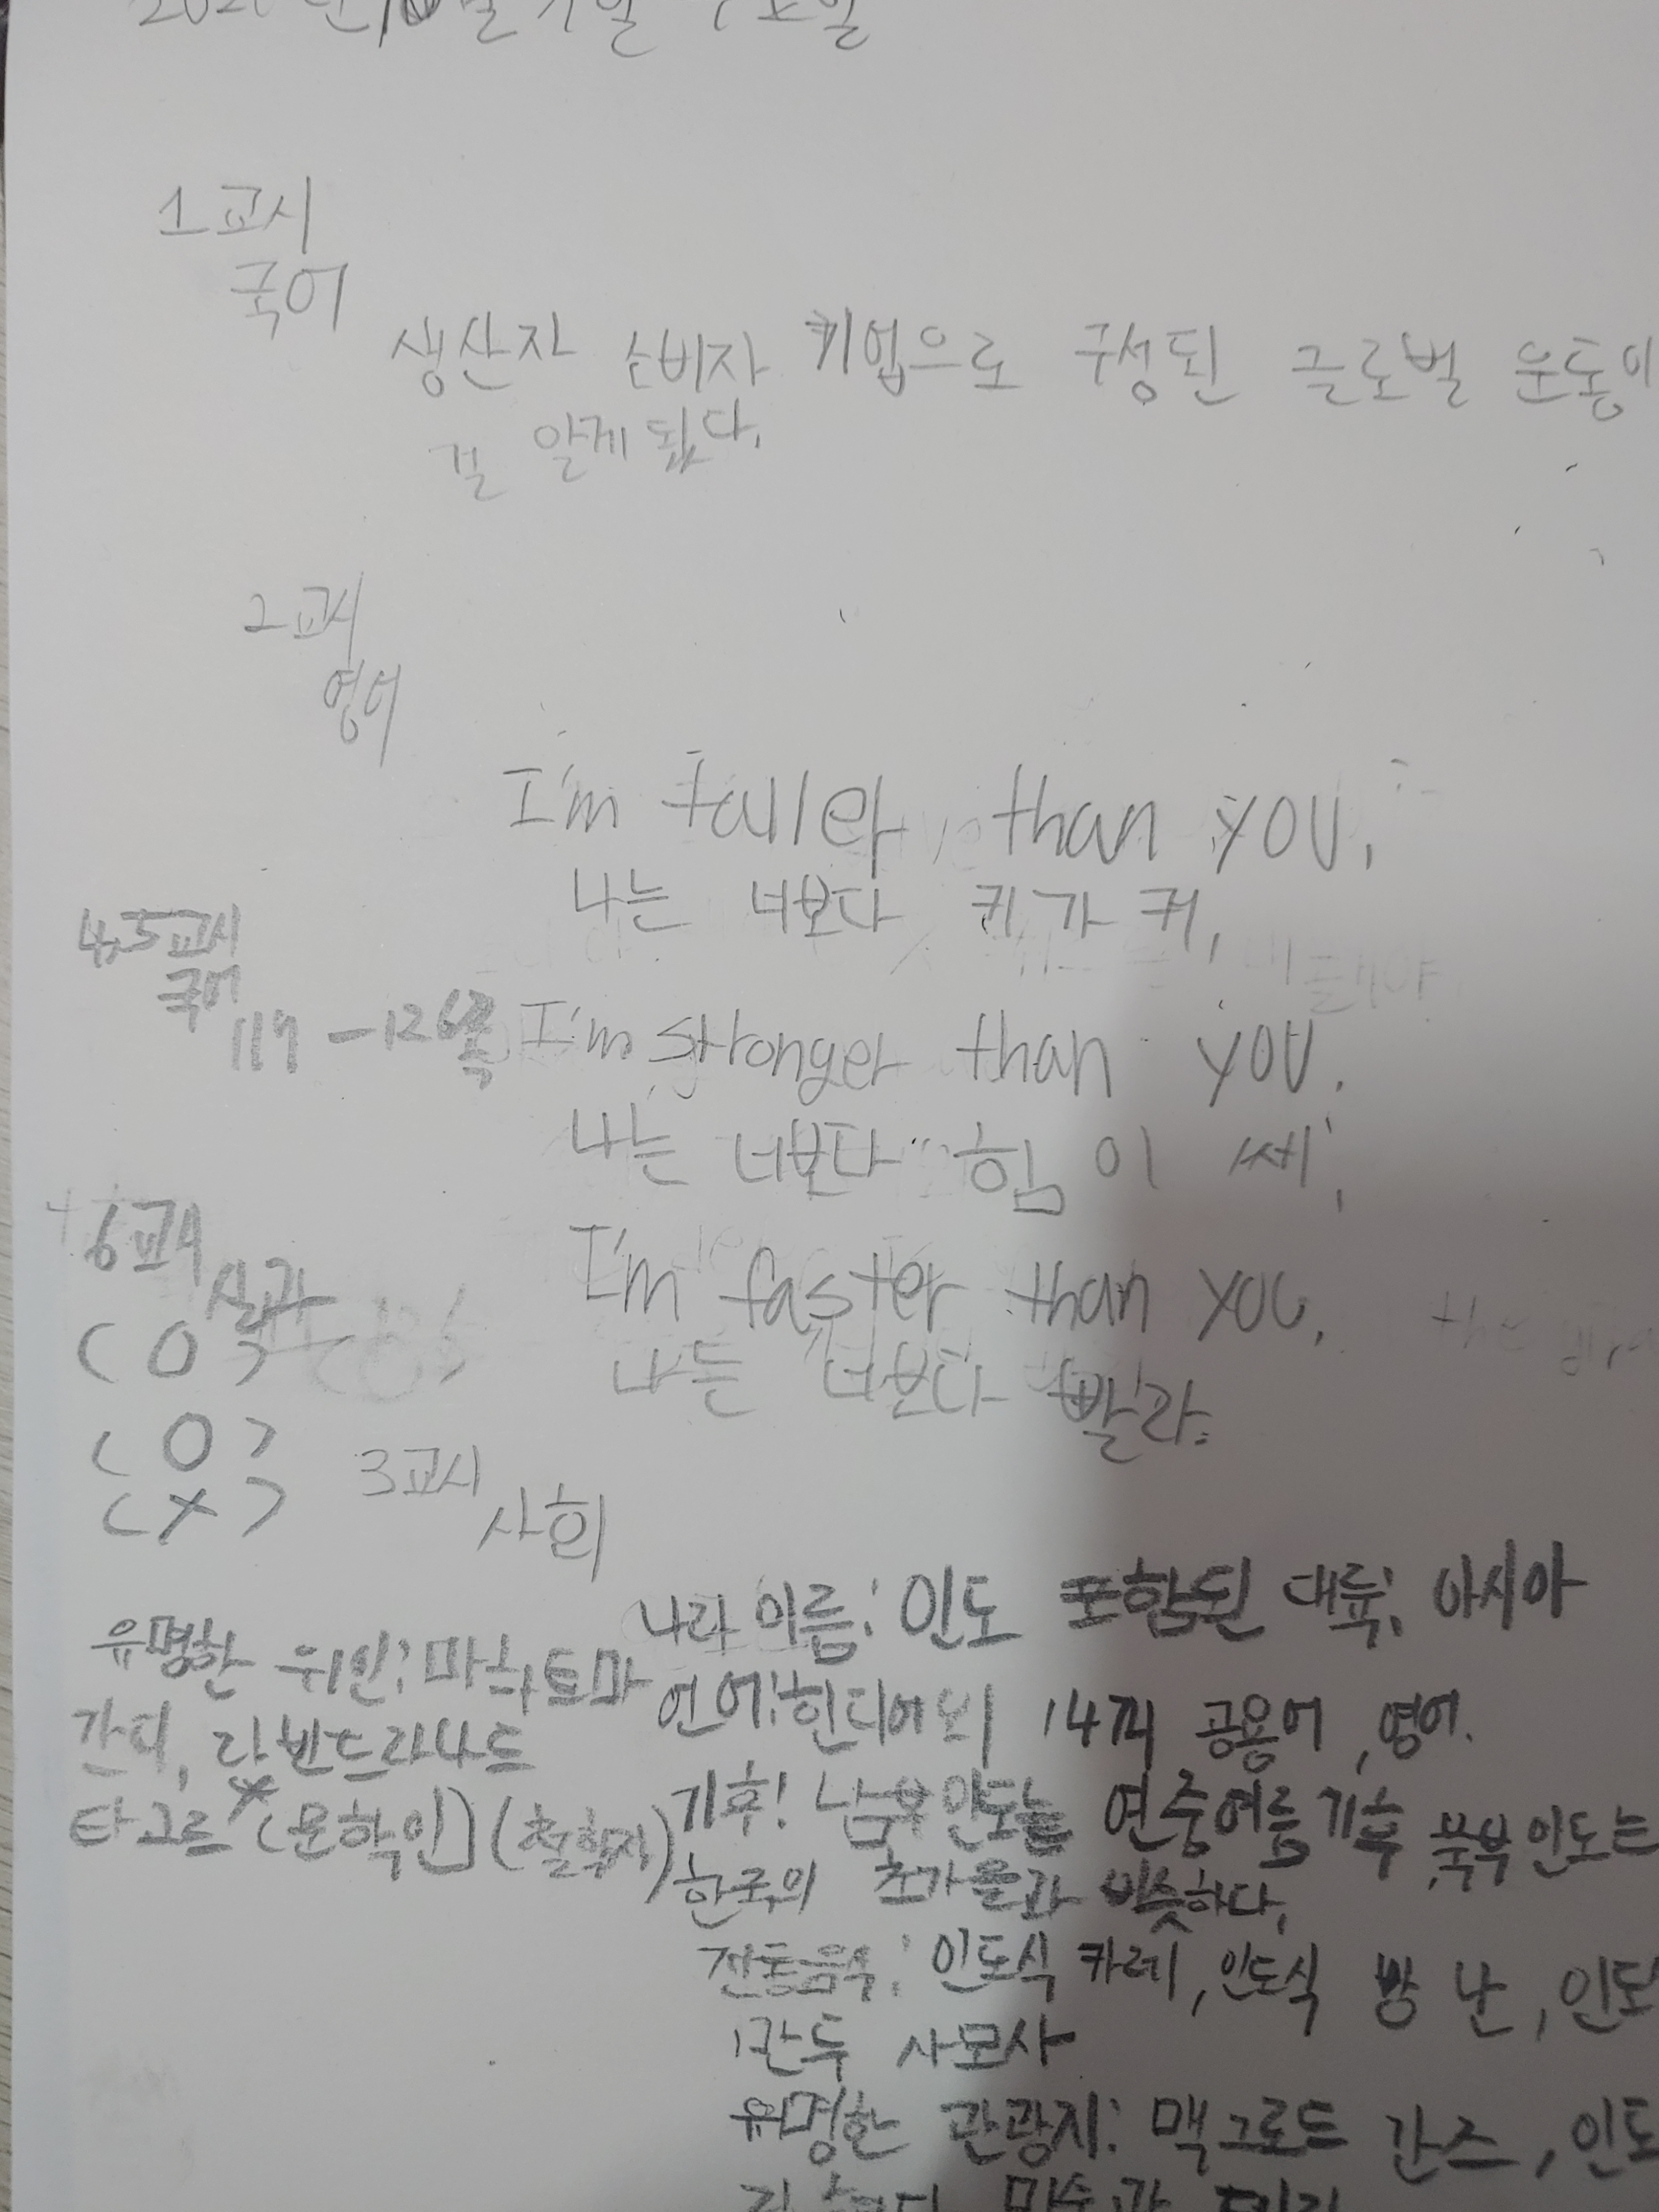 1교시
국어
생산자 소비자 기업으로 구성된 글로벌 운동이
알게 됬다.
2교시
영어
I'm taller than you.
나는 너보다 키가 커.
4,5교시
국어
117-126쪽
I'm stronger than you.
나는 너보다 힘이 쎄.
6교시
실과
(O)
(O)
(X)
I'm faster than you.
나는 너보다 빨라.
3교시
사회
나라 이름: 인도 포함된 대륙: 아시아
언어: 힌디어 외 14개 공용어, 영어.
기후: 남부 인도는 연중여름기후, 북부인도는
한국의 초가을과 비슷하다.
전통음식: 인도식 카레, 인도식 빵 난, 인도
만두 사모사
유명한 관광지: 맥그로드 간즈, 인도
유명한 위인: 마하트마
간디, 라빈드라나드
타고르 (문학인) (철학자)